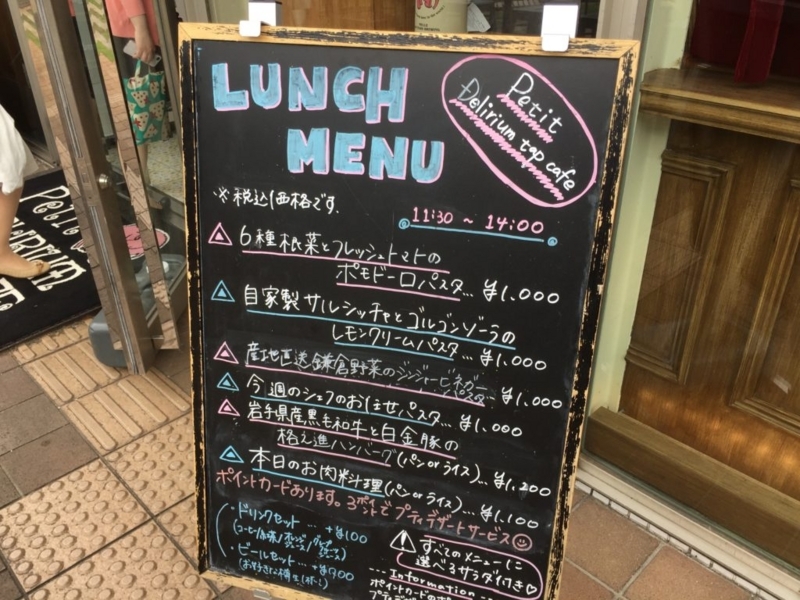 LUNCH
MENU
Petit
Delirium tap cafe
※税込価格です.
11:30 ~ 14:00
6種根菜とフレッシュトマトの
ポモドーロパスタ... ¥1,000
自家製サルシッチャとゴルゴンゾーラの
レモンクリームパスタ... ¥1,000
産地直送鎌倉野菜のジンジャービネガー
パスタ... ¥1,000
今週のシェフのお任せパスタ... ¥1,000
岩手県産黒毛和牛と白金豚の
格之進ハンバーグ(パンorライス)... ¥1,200
本日のお肉料理(パンorライス)... ¥1,100
ポイントカードあります。3ポイントでプティデザートサービス
・ドリンクセット... +¥100
(コーヒー/紅茶/オレンジジュース/グレープジュース)
・ビールセット... +¥700
すべてのメニューに
選べるサラダ付き♡
--- Information ---
ポイントカードの